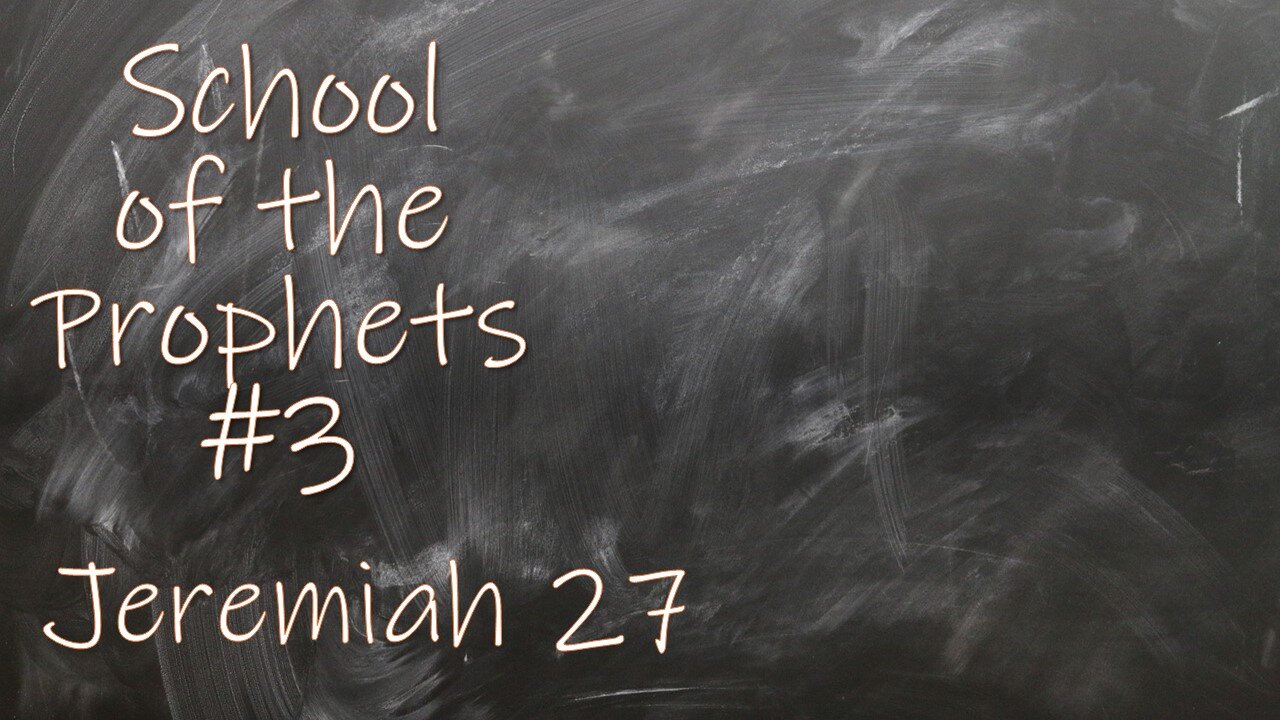 School
of the
Prophets
#3
Jeremiah 27